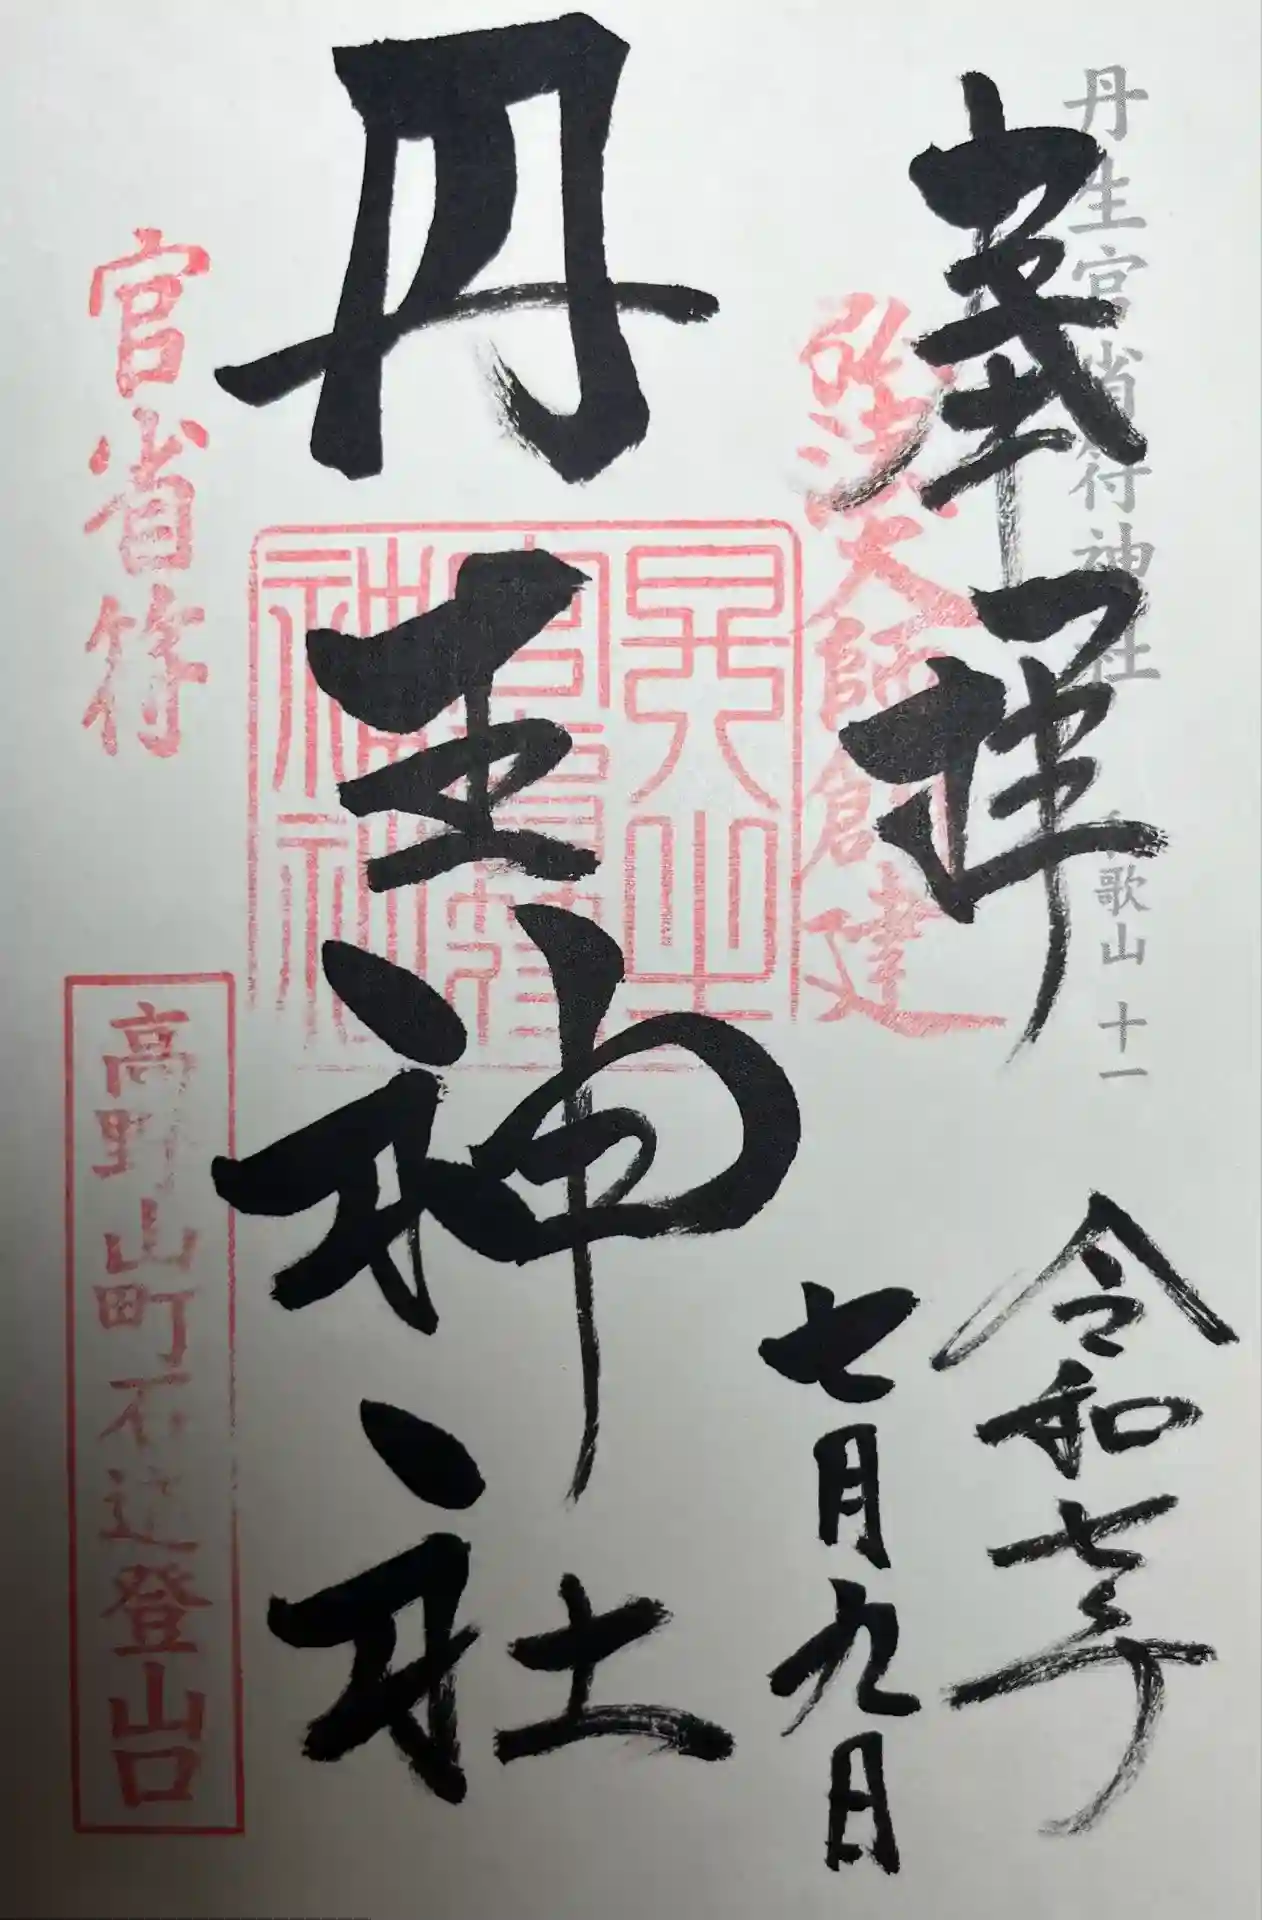 丹生官省符神社 和歌山 十一
奉拝
令和七年
七月九日
弘法大師創建
丹生神社
官省符
高野山町石道登山口